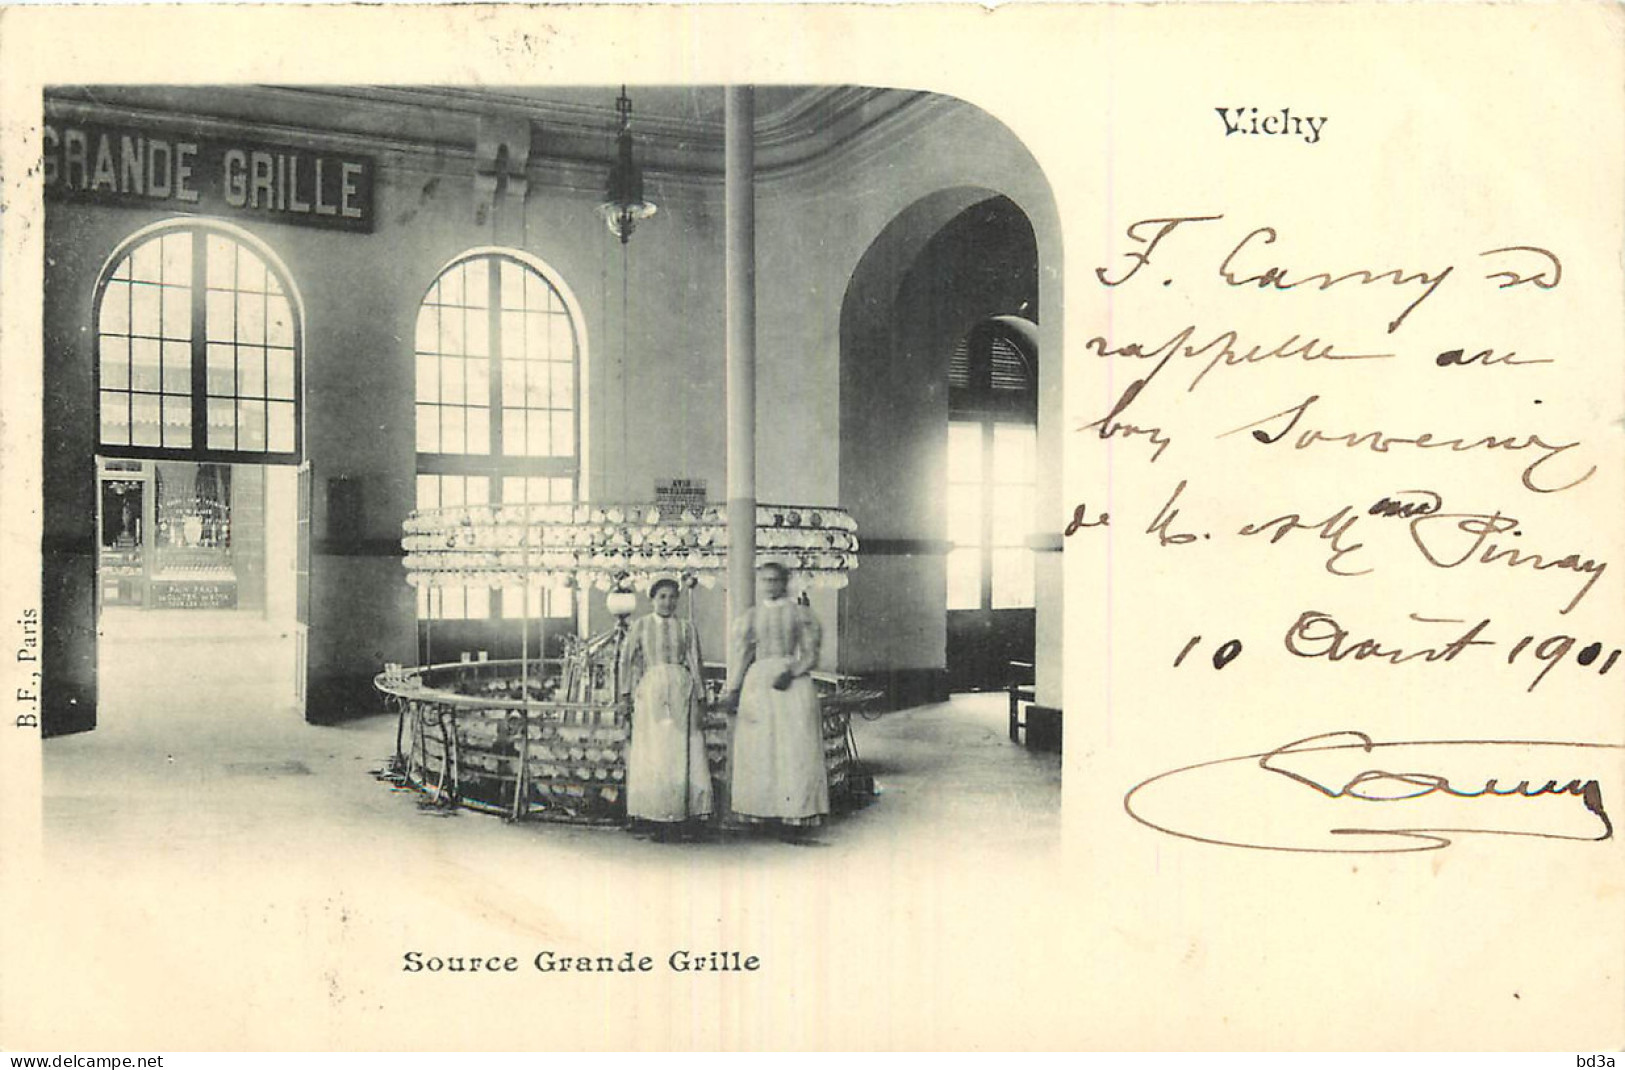 Vichy
GRANDE GRILLE
F. Camy se
rappelle au
bon Souvenir
de M. et Mme Pinay
10 Août 1901
Camy
AVIS
PAIN FRAIS
DE GLUTEN
B.F., Paris
Source Grande Grille
www.delcampe.net
bd3a